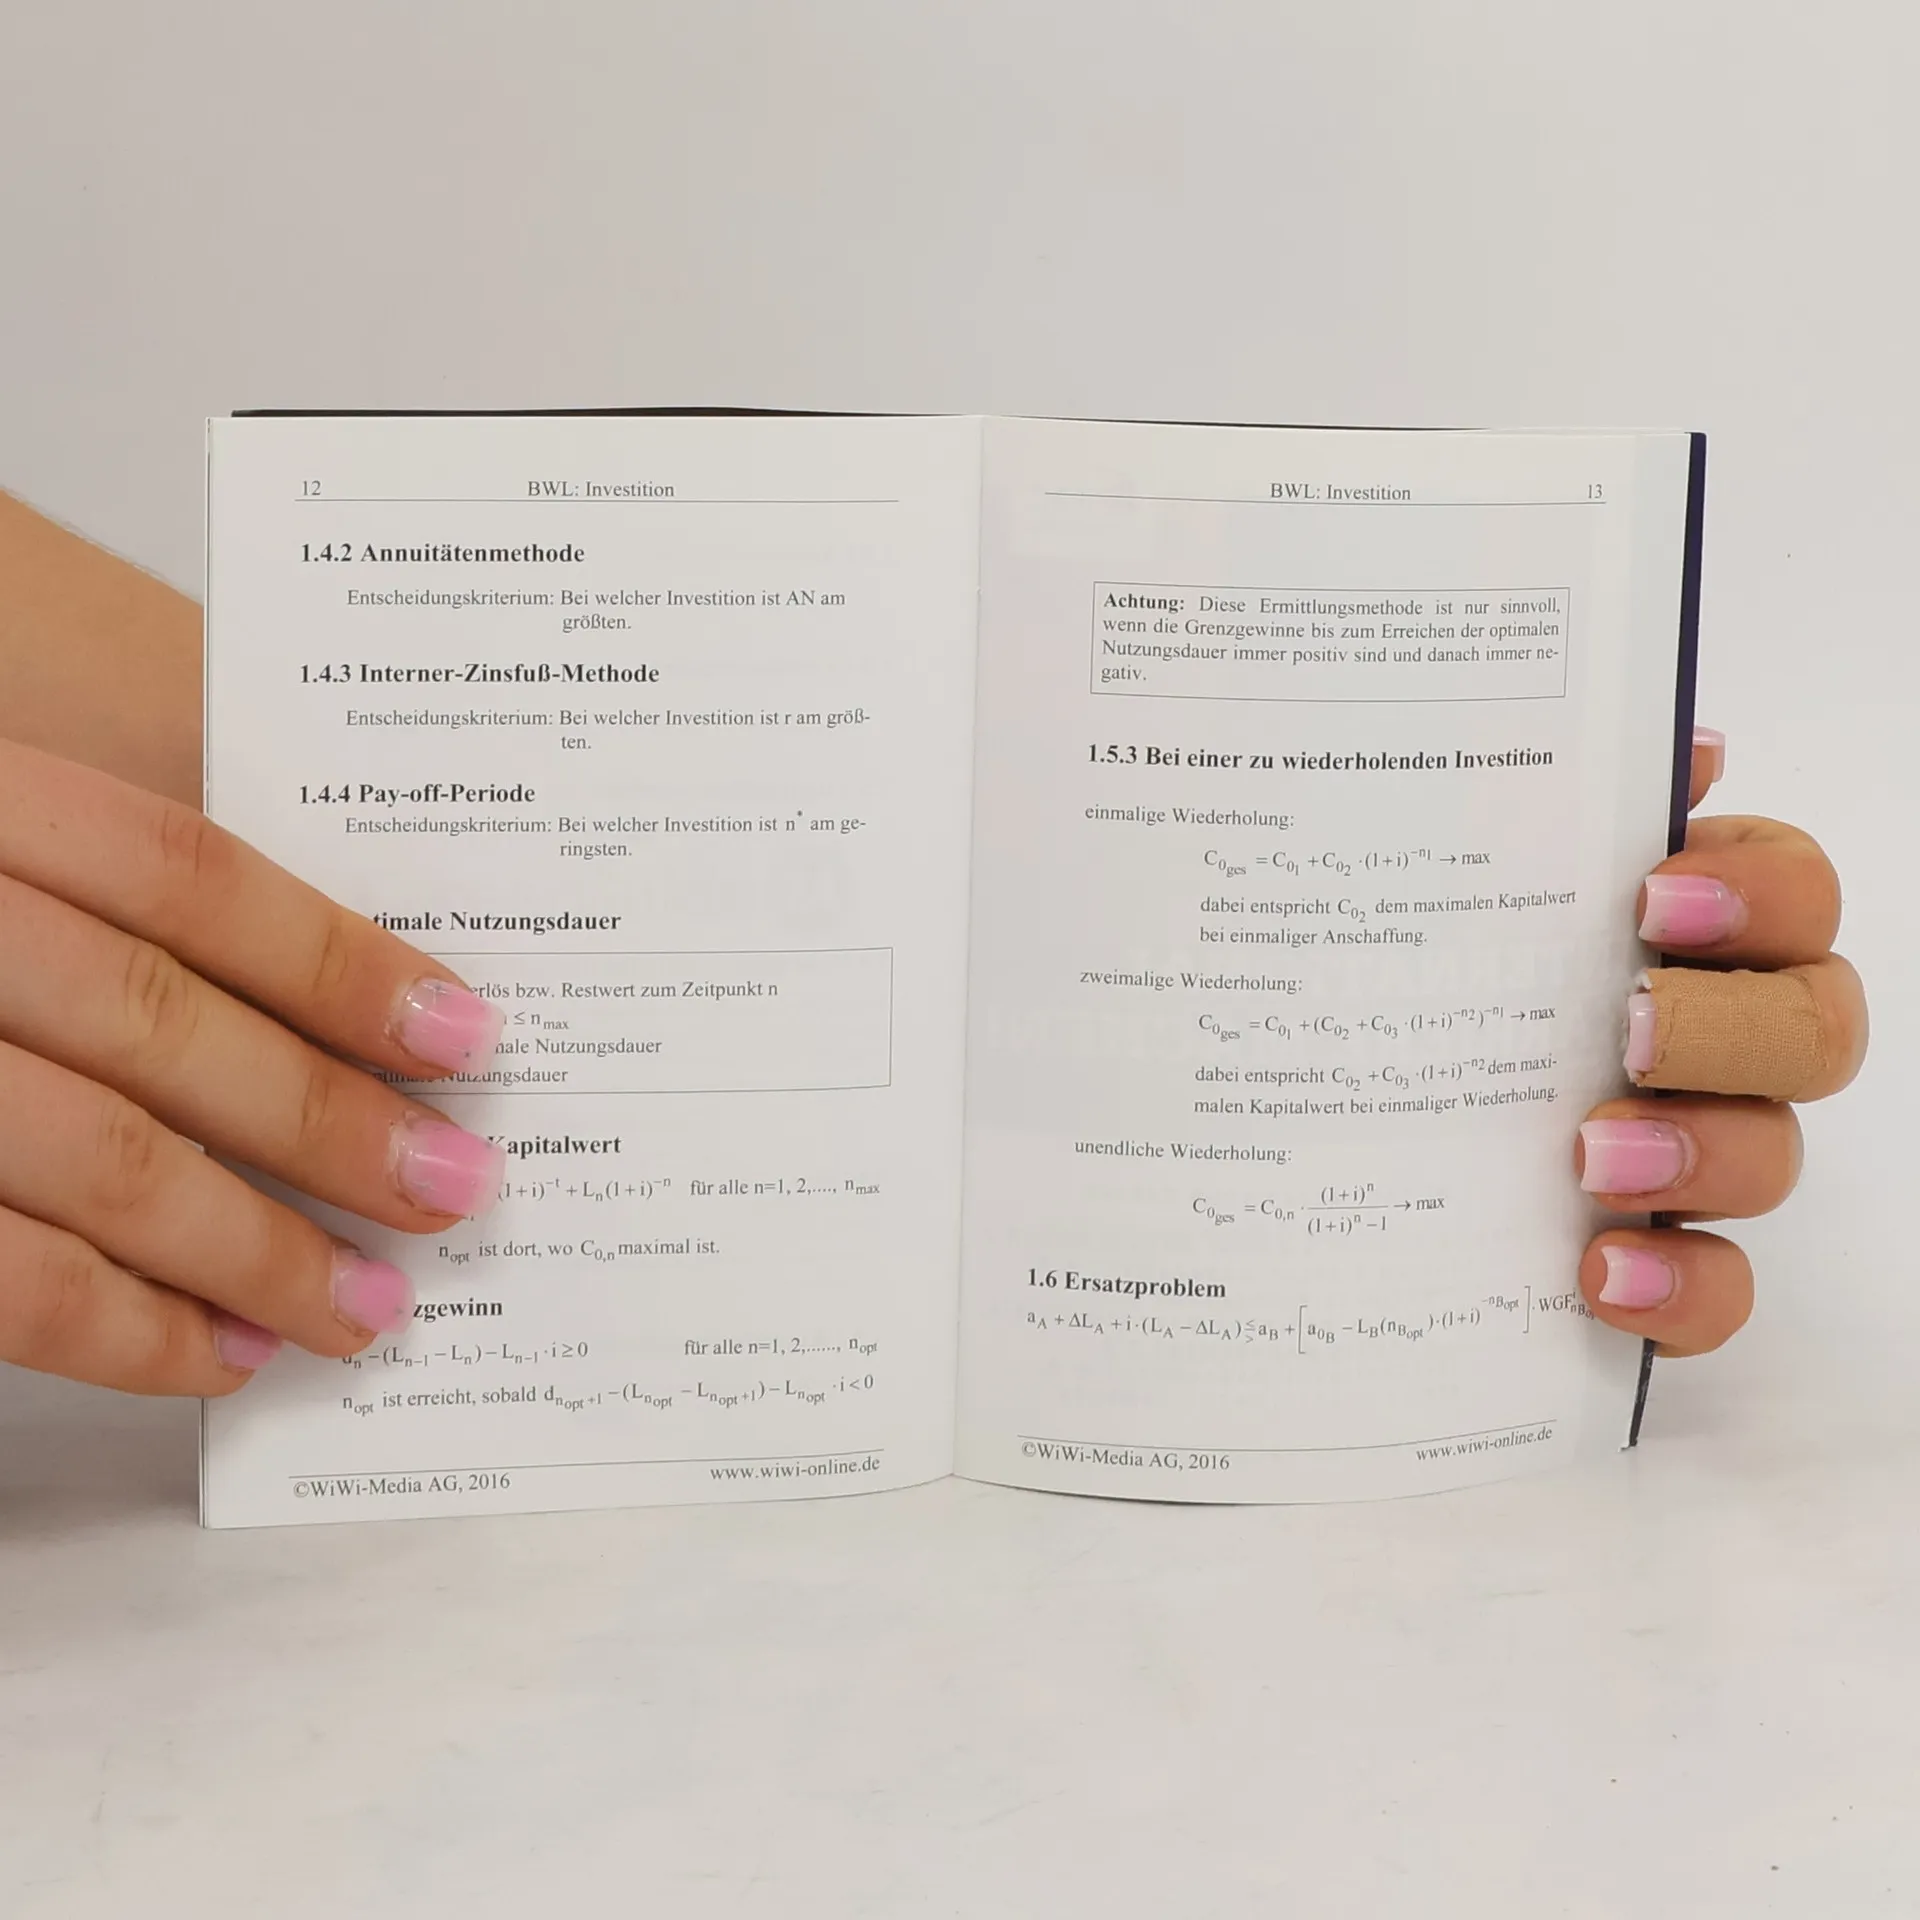 12 BWL: Investition
1.4.2 Annuitätenmethode
Entscheidungskriterium: Bei welcher Investition ist AN am
größten.
1.4.3 Interner-Zinsfuß-Methode
Entscheidungskriterium: Bei welcher Investition ist r am größ-
ten.
1.4.4 Pay-off-Periode
Entscheidungskriterium: Bei welcher Investition ist n* am ge-
ringsten.
timale Nutzungsdauer
erlös bzw. Restwert zum Zeitpunkt n
≤ n_max
nale Nutzungsdauer
Nutzungsdauer
Kapitalwert
(1+i)^−t + L_n(1+i)^−n für alle n=1, 2,...., n_max
n_opt ist dort, wo C_0,n maximal ist.
zgewinn
d_n −(L_n−1 −L_n)−L_n−1 ·i≥0 für alle n=1, 2,......, n_opt
n_opt ist erreicht, sobald d_nopt+1 −(L_nopt −L_nopt+1)−L_nopt ·i<0
©WiWi-Media AG, 2016 www.wiwi-online.de
BWL: Investition 13
Achtung: Diese Ermittlungsmethode ist nur sinnvoll,
wenn die Grenzgewinne bis zum Erreichen der optimalen
Nutzungsdauer immer positiv sind und danach immer ne-
gativ.
1.5.3 Bei einer zu wiederholenden Investition
einmalige Wiederholung:
C_0ges = C_01 + C_02 ·(1+i)^−n1 → max
dabei entspricht C_02 dem maximalen Kapitalwert
bei einmaliger Anschaffung.
zweimalige Wiederholung:
C_0ges = C_01 +(C_02 +C_03 ·(1+i)^−n2)^−n1 → max
dabei entspricht C_02 +C_03 ·(1+i)^−n2 dem maxi-
malen Kapitalwert bei einmaliger Wiederholung.
unendliche Wiederholung:
C_0ges = C_0,n · (1+i)^n / ((1+i)^n −1) → max
1.6 Ersatzproblem
a_A +ΔL_A +i·(L_A −ΔL_A) ≤> a_B +[a_0B −L_B(n_Bopt)·(1+i)^−nBopt]·WGF
©WiWi-Media AG, 2016 www.wiwi-online.de